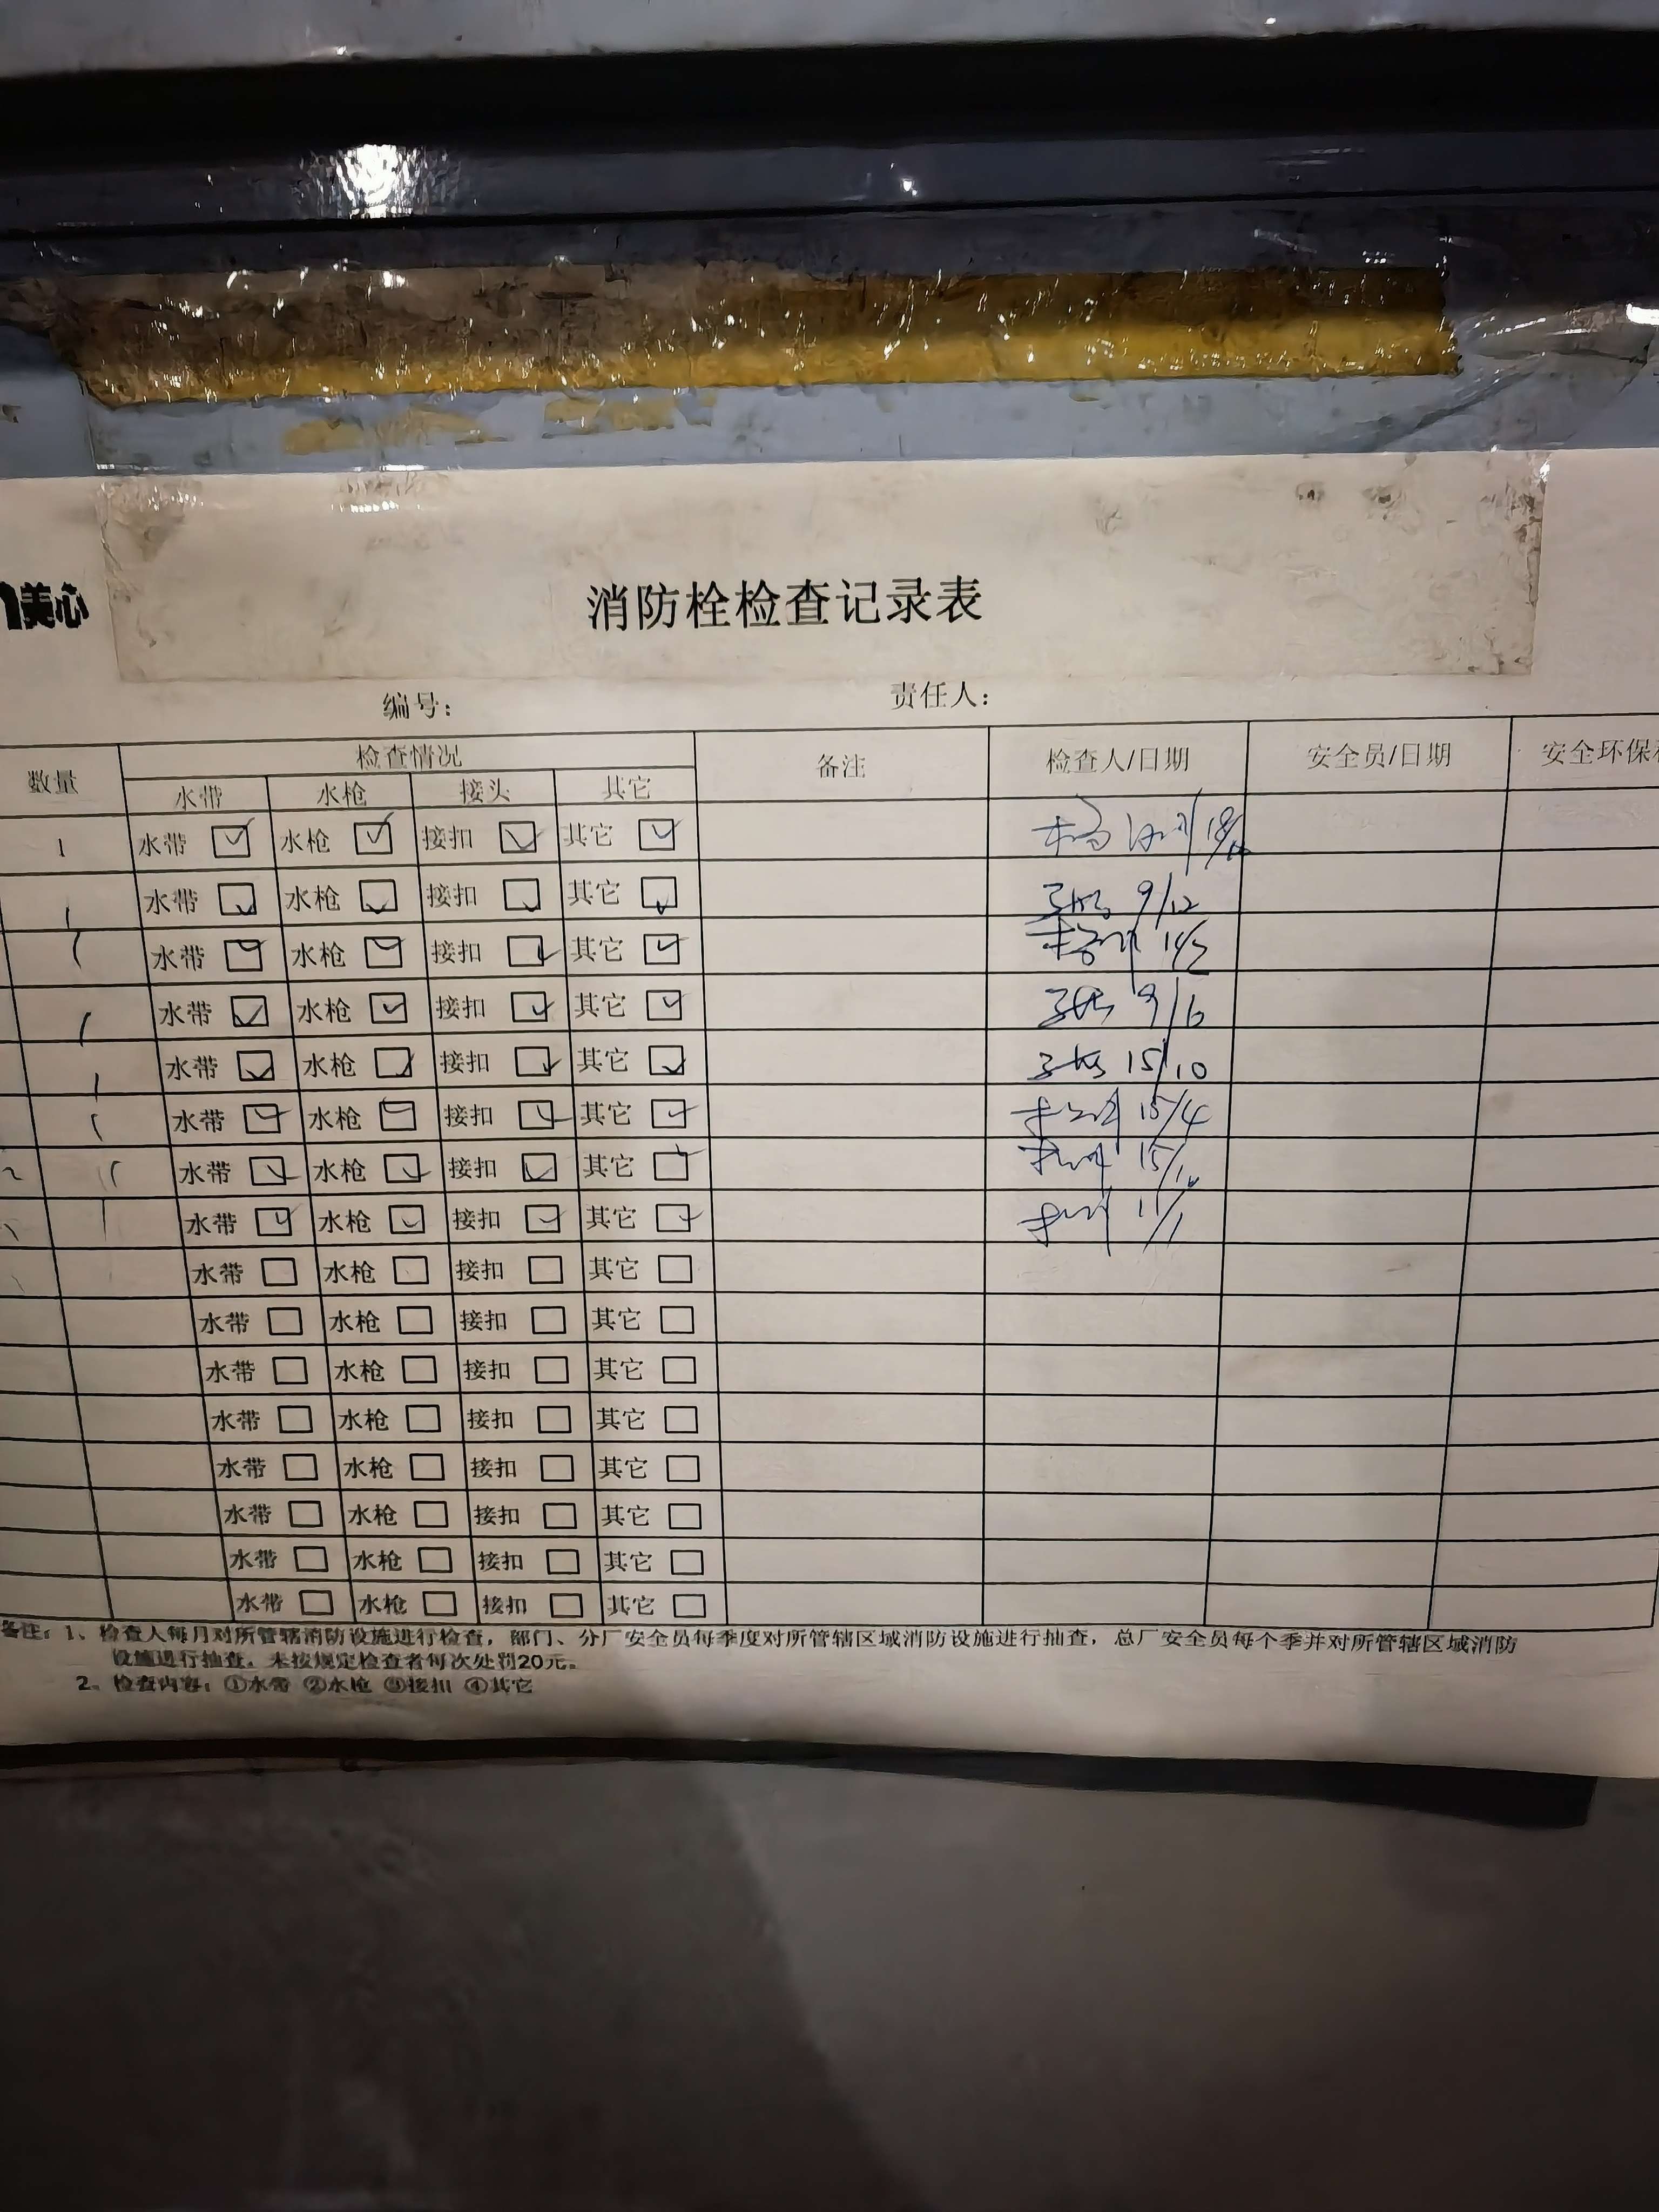 美心
消防栓检查记录表
编号： 责任人：
数量 检查情况 备注 检查人/日期 安全员/日期 安全环保
水带 水枪 接头 其它
1 水带 ☑ 水枪 ☑ 接扣 ☑ 其它 ☑
1 水带 ☑ 水枪 ☑ 接扣 ☑ 其它 ☑ 9/12
1 水带 ☑ 水枪 ☑ 接扣 ☑ 其它 ☑
1 水带 ☑ 水枪 ☑ 接扣 ☑ 其它 ☑ 9/6
1 水带 ☑ 水枪 ☑ 接扣 ☑ 其它 ☑ 15/10
1 水带 ☑ 水枪 ☑ 接扣 ☑ 其它 ☑ 15/4
水带 ☑ 水枪 ☑ 接扣 ☑ 其它 ☑
1 水带 ☑ 水枪 ☑ 接扣 ☑ 其它 ☑ 11/1
水带 □ 水枪 □ 接扣 □ 其它 □
水带 □ 水枪 □ 接扣 □ 其它 □
水带 □ 水枪 □ 接扣 □ 其它 □
水带 □ 水枪 □ 接扣 □ 其它 □
水带 □ 水枪 □ 接扣 □ 其它 □
水带 □ 水枪 □ 接扣 □ 其它 □
水带 □ 水枪 □ 接扣 □ 其它 □
水带 □ 水枪 □ 接扣 □ 其它 □
备注：1、检查人每月对所管辖消防设施进行检查，部门、分厂安全员每季度对所管辖区域消防设施进行抽查，总厂安全员每个季并对所管辖区域消防
设施进行抽查。未按规定检查者每次处罚20元。
2、检查内容：①水带 ②水枪 ③接扣 ④其它